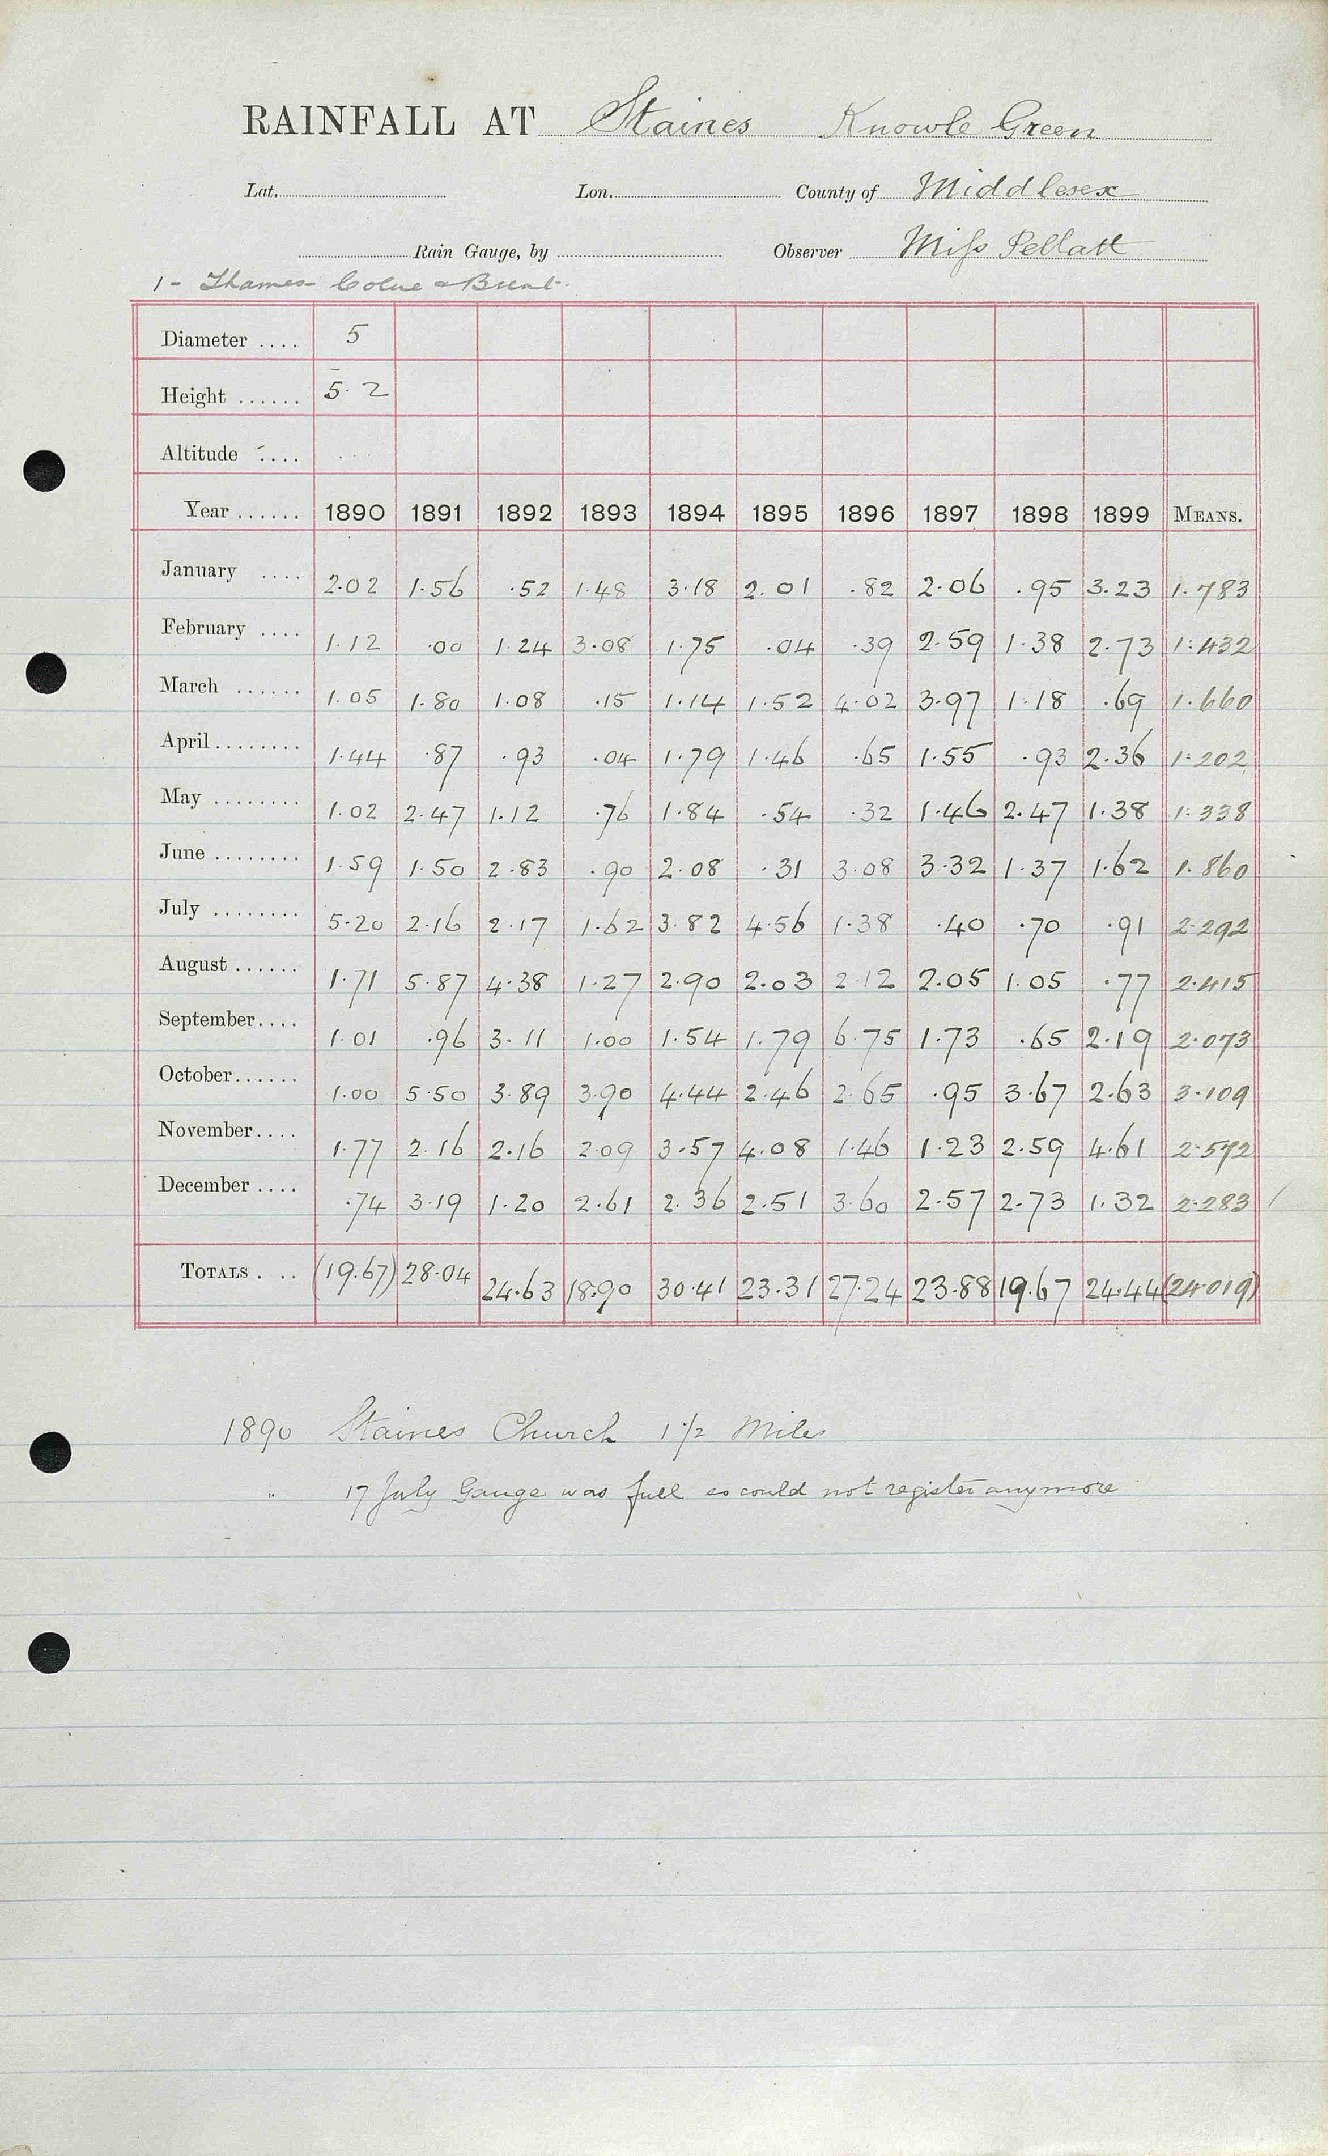 RAINFALL AT Staines Knowle Green
Lat. Lon. County of Middlesex
Rain Gauge, by Observer Miss Pellatt
1 - Thames Colne & Brent.
Diameter .... 5
Height ...... 5.2
Altitude ....
Year ...... 1890 1891 1892 1893 1894 1895 1896 1897 1898 1899 MEANS.
January .... 2.02 1.56 .52 1.48 3.18 2.01 .82 2.06 .95 3.23 1.783
February .... 1.12 .00 1.24 3.08 1.75 .04 .39 2.59 1.38 2.73 1.432
March ...... 1.05 1.80 1.08 .15 1.14 1.52 4.02 3.97 1.18 .69 1.660
April ........ 1.44 .87 .93 .04 1.79 1.46 .65 1.55 .93 2.36 1.202
May ........ 1.02 2.47 1.12 .76 1.84 .54 .32 1.46 2.47 1.38 1.338
June ........ 1.59 1.50 2.83 .90 2.08 .31 3.08 3.32 1.37 1.62 1.860
July ........ 5.20 2.16 2.17 1.62 3.82 4.56 1.38 .40 .70 .91 2.292
August ...... 1.71 5.87 4.38 1.27 2.90 2.03 2.12 2.05 1.05 .77 2.415
September .... 1.01 .96 3.11 1.00 1.54 1.79 6.75 1.73 .65 2.19 2.073
October ...... 1.00 5.50 3.89 3.90 4.44 2.46 2.65 .95 3.67 2.63 3.109
November .... 1.77 2.16 2.16 2.09 3.57 4.08 1.46 1.23 2.59 4.61 2.572
December .... .74 3.19 1.20 2.61 2.36 2.51 3.60 2.57 2.73 1.32 2.283 /
TOTALS . .. (19.67) 28.04 24.63 18.90 30.41 23.31 27.24 23.88 19.67 24.44 (24.019)
1890 Staines Church 1 1/2 Miles
" 17 July Gauge was full so could not register any more